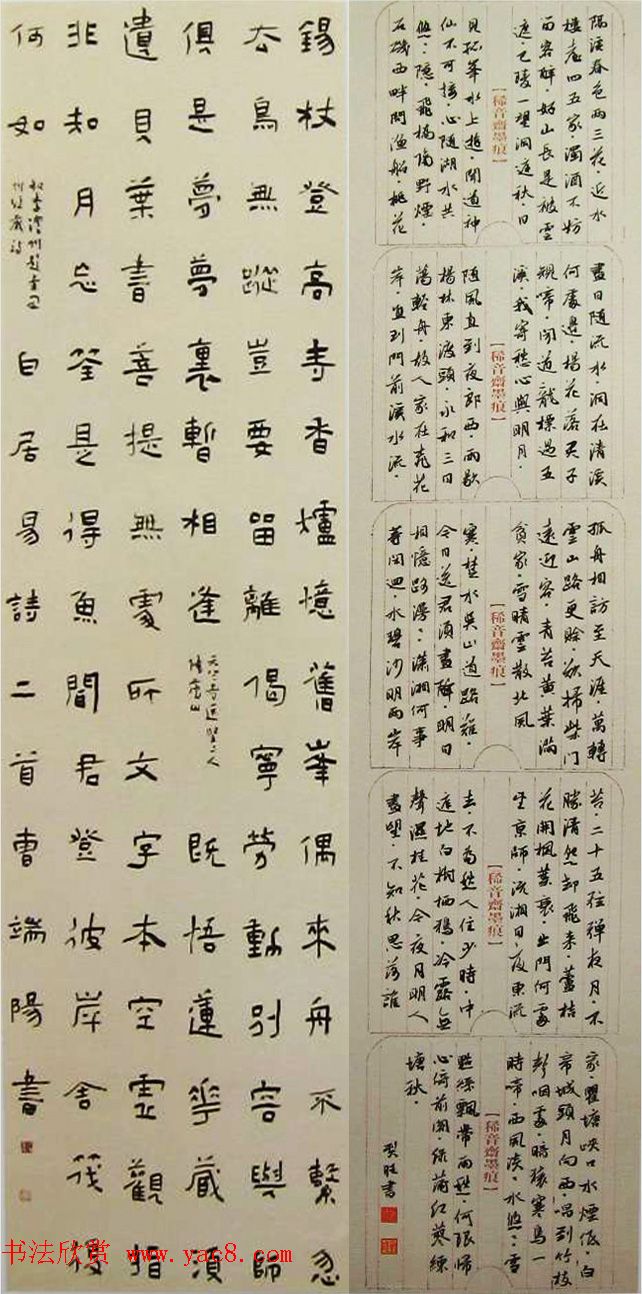 錫杖登高寺香爐憶舊峯偶來舟不繫忽
去鳥無蹤豈要留離偈寧勞動別容與師
俱是夢夢裏暫相逢天竺寺送堅上人
歸廬山既悟蓮花藏須
遺貝葉書菩提無處所文字本空虛觀指
非知月忘筌是得魚聞君登彼岸舍筏復
何如和李澧州題韋開
州經藏詩白居易詩二首曹端陽書
隔溪春色兩三花·近水
樓臺四五家·濁酒不妨
留客醉·好山長是被雲
遮·巴陵一望洞庭秋·日
【稀音齋墨痕】
見孤峯水上浮·聞道神
仙不可接·心隨湖水共
悠悠·隱隱飛橋隔野煙·
石磯西畔問漁船·桃花
盡日隨流水·洞在清溪
何處邊·楊花落盡子
規啼·聞道龍標過五
溪·我寄愁心與明月·
【稀音齋墨痕】
隨風直到夜郎西·雨歇
楊林東渡頭·永和三日
蕩輕舟·故人家在桃花
岸·直到門前溪水流·
孤舟相訪至天涯·萬轉
雲山路更賒·欲掃柴門
遠迎客·青苔黃葉滿
貧家·雪晴雲散北風
【稀音齋墨痕】
寒·楚水吳山道路難·
今日送君須盡醉·明日
相憶路漫漫·瀟湘何事
等閑迴·水碧沙明兩岸
苔·二十五弦彈夜月·不
勝清怨卻飛來·蘆桔
花開楓葉衰·出門何處
望京師·沅湘日夜東流
【稀音齋墨痕】
去·不為愁人住少時·中
庭地白樹栖鴉·冷露無
聲濕桂花·今夜月明人
盡望·不知秋思落誰
家·瞿塘峽口水煙低·白
帝城頭月向西·唱到竹枝
聲咽處·暗猿寒鳥一
時啼·西風淡淡水悠悠·雪
【稀音齋墨痕】
點絲飄帶雨愁·何限歸
心倚前閣·綠蒲紅蓼練
塘秋·
书法欣赏 www.yac8.com